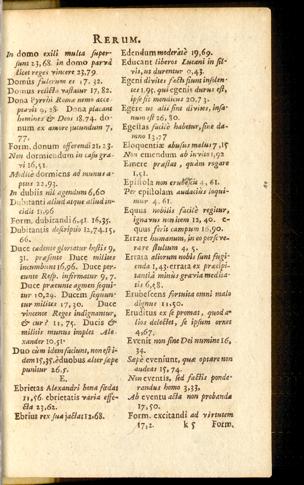 RERUM.
In domo exili multa super-
sunt 23,68. in domo parvâ
licet reges vincere 23,79.
Domus fulcrum es 17. 32.
Domus relicta vastatur 17, 82.
Dona Pyrrhi Roma nemo acce-
pturus 9, 28 Dona placant
homines & Deos 18.74. do-
num ex amore jucundum 7,
77.
Form. donum offerendi 21, 23.
Non dormiendum in casu gra-
vi 16,51.
Mediùs dormiens ad munus a-
ptus 22,93.
In dubiis nil agendum 6,60
Dubitanti aliud atque aliud in-
cidit 21,96
Form. dubitandi 6,41. 16,35.
Dubitantis descriptio 12,74.15,
66.
Duce cadente gloriatur hostis 9,
31. præsente Duce milites
incumbunt 16,96. Duce per-
eunte Resp. infirmatur 9, 7.
Duce præeunte agmen sequi-
tur 10,29. Ducem sequun-
tur milites 17,30. Duce
vincente Reges indignantur,
& cur? 11, 75. Ducis &
militis munus implet Ale-
xander 10.51.
Duo cùm idem faciunt, non est i-
dem 15,35. è duobus alter sæpe
punitur 26.5.
E.
Ebrietas Alexandri bena sedas
11,56. ebrietatis varia effe-
cta 23,62.
Ebrius rex sua jactat 12.68.
Edendum moderatè 19,69.
Educant liberos Lucani in sil-
vis, ut durentur 0,43.
Egeni divites facti fiunt insolen-
tes 1.95. qui egenis durus est,
ipse sit mendicus 20.73.
Egere ut alii sint divites, insa-
num est 26,80.
Egestas facilè habetur, sine da-
mno 13,77
Eloquentiæ abusus malus 7,15
Non emendum ab invitis 1,92
Emere præstas, quàm rogare
1,51.
Epistola non erubescit 4, 61.
Per epistolam audacius loqui-
mur 4. 61.
Equus nobilis facilè regitur,
ignavus non item 12, 40. e-
quus foris campum 16,90.
Errare humanum, in eo perseve-
rare stultum 4, 5.
Errata aliorum nobis sunt fugi-
enda 1,43. errata ex præcipi-
tantiâ minùs gravia media-
tis 6,48.
Erubescens fortuita omni malo
dignus 11.50.
Eruditus ex se promas, quod a-
lios delectet, se ipsum ornet
4,67.
Evenit non sine Dei numine 16,
34.
Sæpè eveniunt, quæ optare non
audeas 15,74.
Non eventis, sed factis ponde-
randus homo 3,33.
Ab eventu acta non probanda
17,50.
Form. excitandi ad virtutem
17,2. k 5 Form.